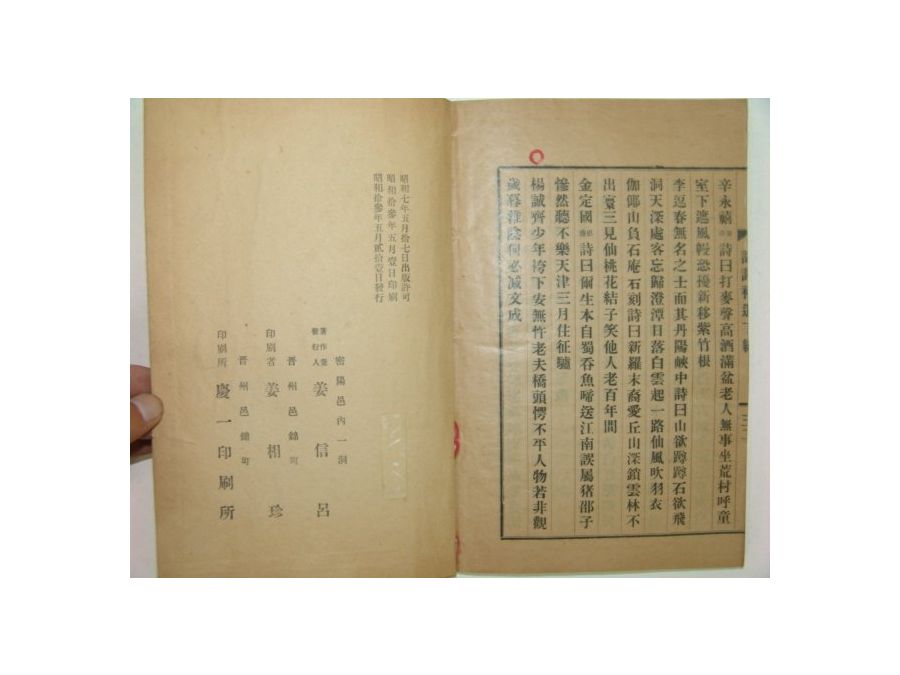 辛永禧詩曰打麥聲高酒滿盆老人無事坐荒村呼童
室下遮風幔恐擾新移紫竹根
李逗春無名之士而其丹陽峽中詩曰山欲蹲蹲石欲飛
洞天深處客忘歸澄潭日落白雲起一路仙風吹羽衣
伽倻山負石庵石刻詩曰新羅末裔愛丘山深鎖雲林不
出寰三見仙桃花結子笑他人老百年間
金定國詩曰爾生本自蜀吞魚啼送江南誤屬猪邵子
慘然聽不樂天津三月住征驢
楊誠齊少年袴下安無忤老夫橋頭愕不平人物若非觀
歲暮淮陰何必减文成
昭和七年五月拾七日出版許可
昭和拾參年五月壹日印刷
昭和拾參年五月貳拾壹日發行
密陽邑內一洞
著作兼發行人 姜信呂
晋州邑錦町
印刷者 姜相珍
晋州邑錦町
印刷所 慶一印刷所